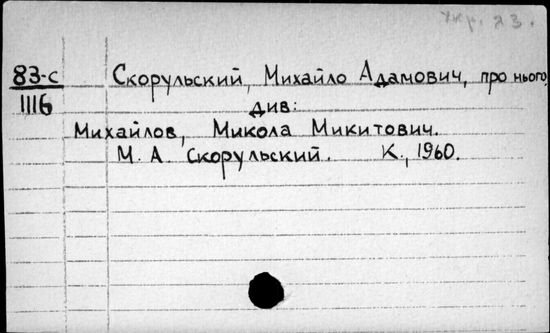 Укр. 23.
83-с Скорульский, Михайло Адамович, про нього,
1116 див:
Михайлов, Микола Микитович.
М. А. Скорульский. К., 1960.